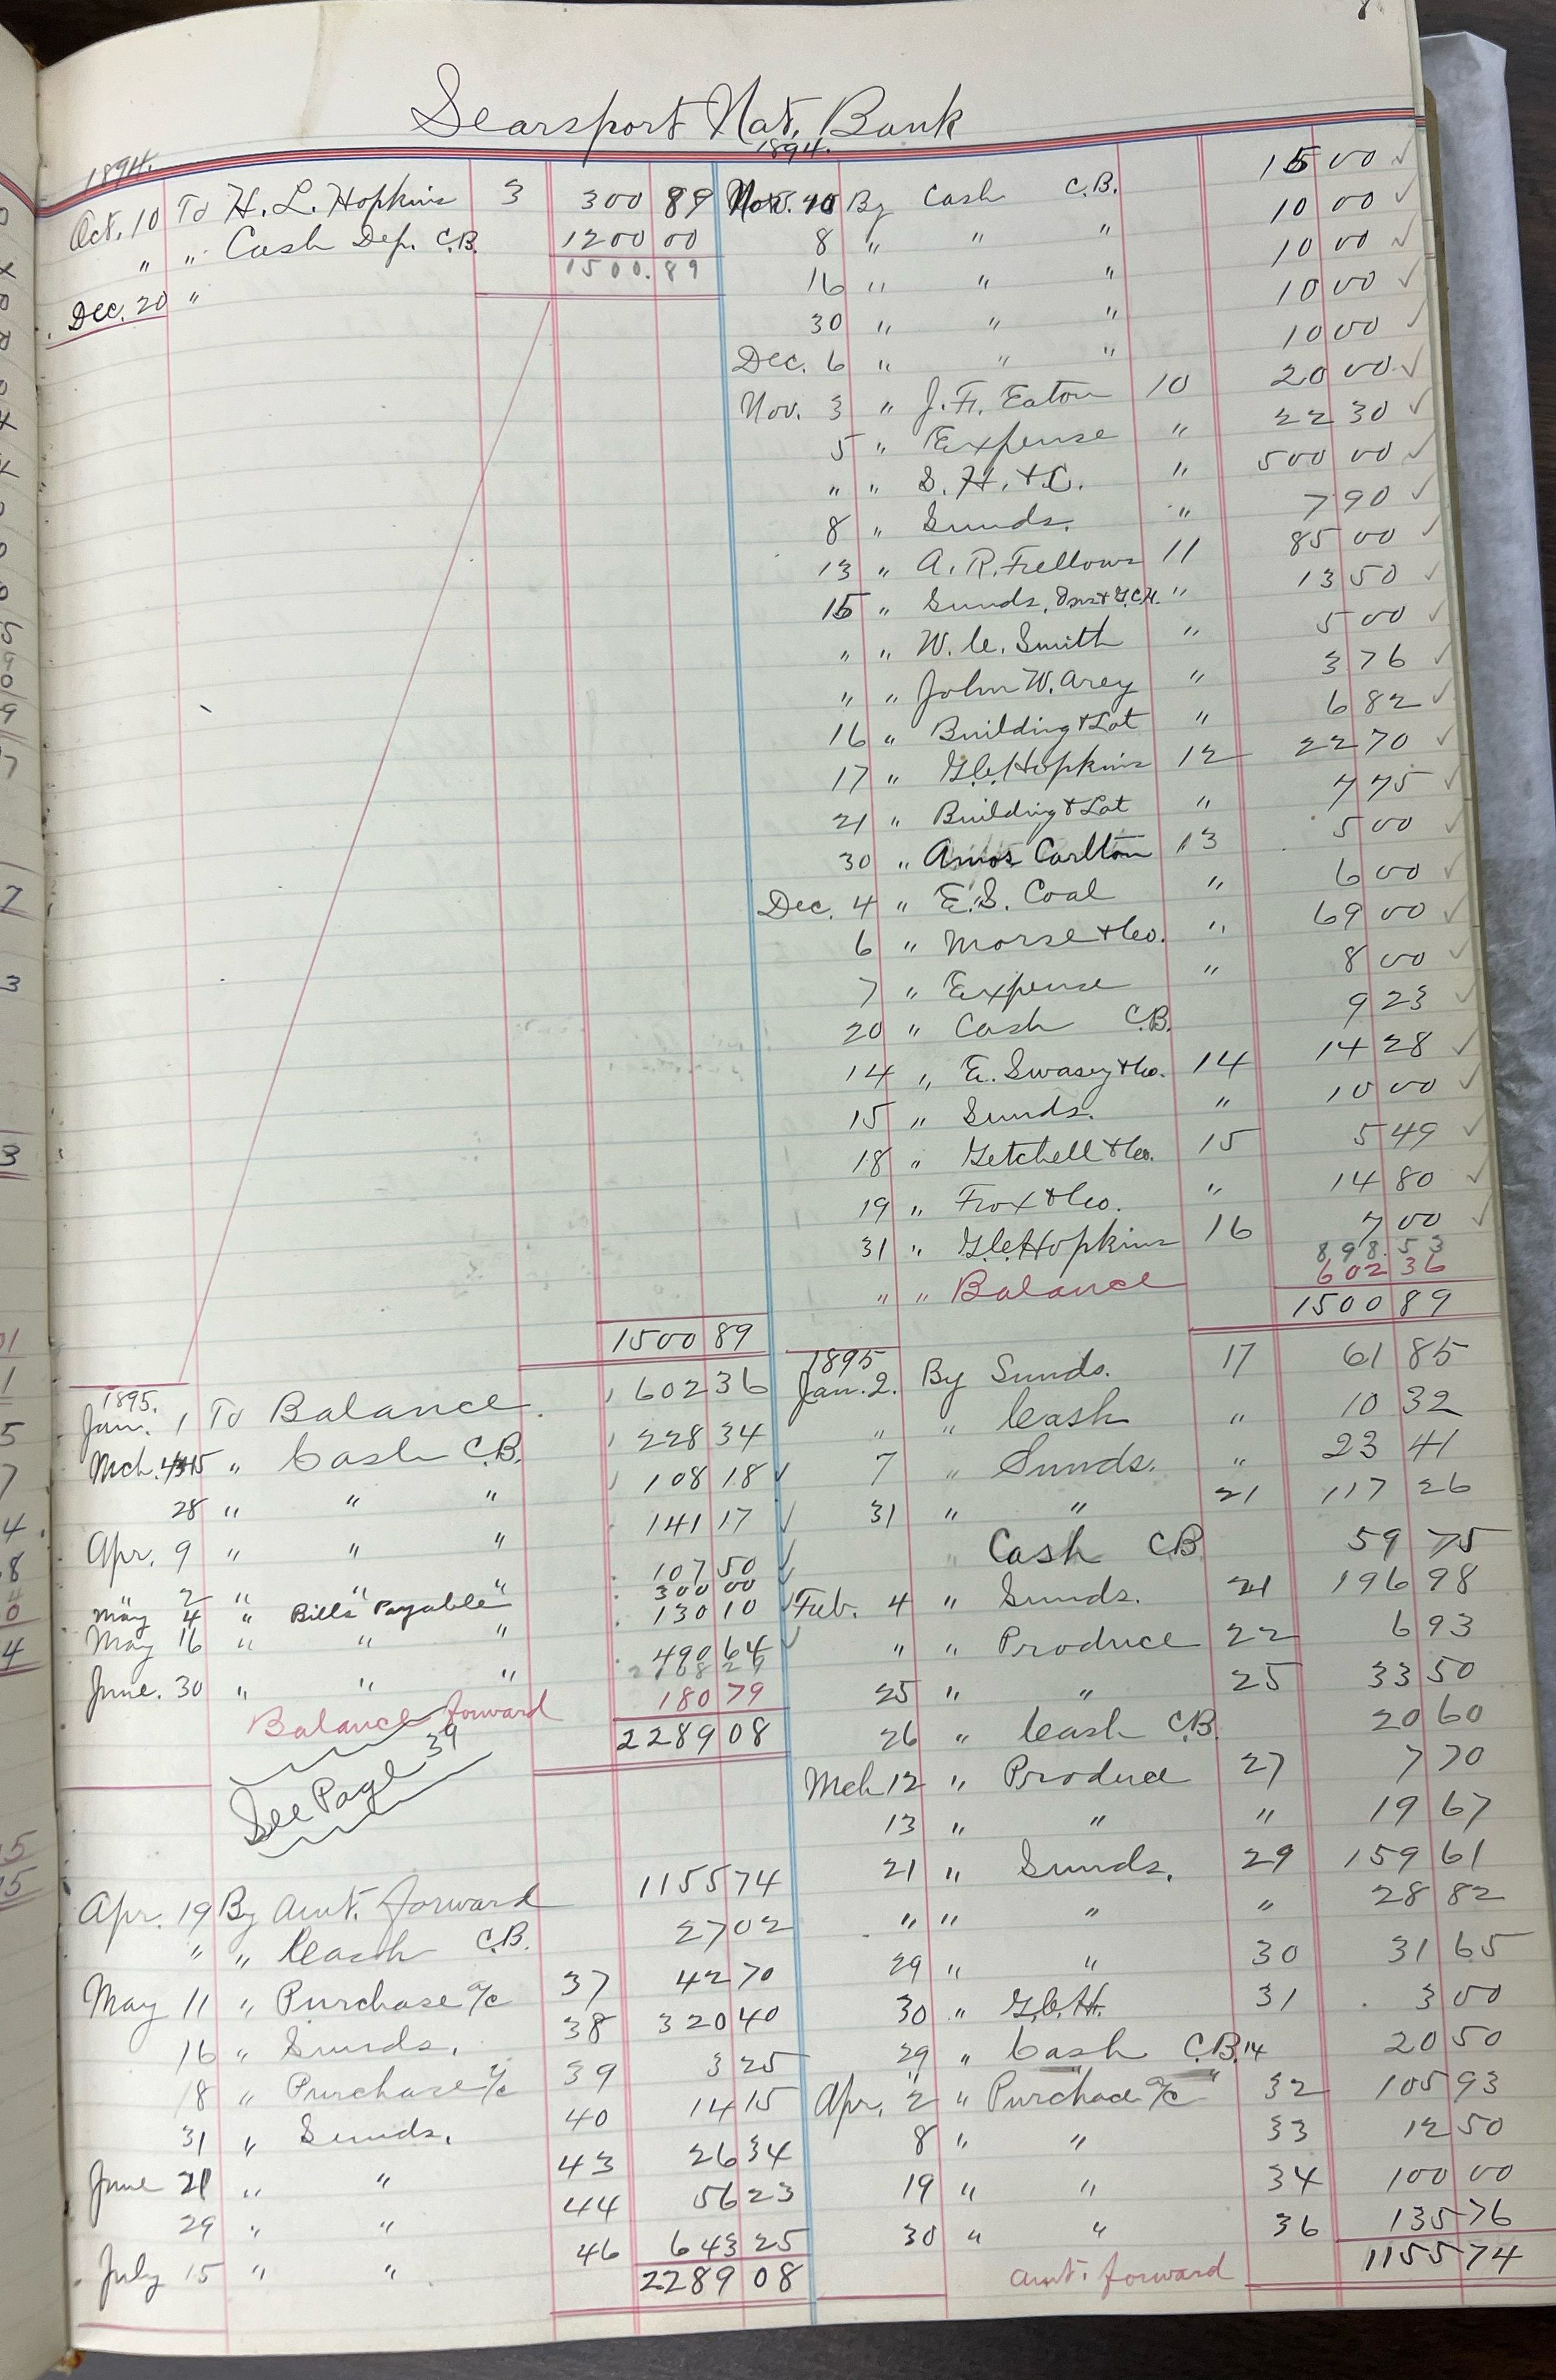 Searsport Nat. Bank
1894.
Oct. 10 To H. L. Hopkins 3 300 89
" " Cash Dep. C.B. 1200 00
1500.89
Dec. 20 "
1500 89
1895.
Jan. 1 To Balance. 602 36
Mch. 15 " Cash C.B. 228 34
28 " " " 108 18 ✓
Apr. 9 " " " 141 17 ✓
" 2 " " " 107 50 ✓
May 4 " Bills Payable 300 00
May 16 " " " 130 10 ✓
June. 30 " " " 490 64 ✓
Balance forward 180 79
2289 08
See Page 39
Apr. 19 By Amt. forward 1155 74
" " Cash C.B. 27 02
May 11 " Purchase a/c 37 42 70
16 " Sunds. 38 320 40
18 " Purchase a/c 39 3 25
31 " Sunds. 40 14 15
June 21 " " 43 26 34
29 " " 44 56 23
July 15 " " 46 643 25
2289 08
1894.
Nov. By Cash C.B. 15 00 ✓
8 " " " 10 00 ✓
16 " " " 10 00 ✓
30 " " " 10 00 ✓
Dec. 6 " " " 10 00 ✓
Nov. 3 " J. F. Eaton 10 20 00 ✓
5 " Expense " 22 30 ✓
" " S. H. & C. " 500 00 ✓
8 " Sunds. " 7 90 ✓
13 " A. R. Fellows 11 85 00 ✓
15 " Sunds. " 13 50 ✓
" " W. C. Smith " 5 00 ✓
" " John W. Arey " 3 76 ✓
16 " Building & Lot " 6 82 ✓
17 " G. C. Hopkins 12 22 70 ✓
21 " Building & Lot " 7 75 ✓
30 " Amos Carlton 13 5 00 ✓
Dec. 4 " E. S. Coal " 6 00 ✓
6 " Morse & Co. " 69 00 ✓
7 " Expense " 8 00 ✓
20 " Cash C.B. 9 23 ✓
14 " E. Swasey & Co. 14 14 28 ✓
15 " Sunds. " 10 00 ✓
18 " Getchell & Co. 15 5 49 ✓
19 " Fox & Co. " 14 80 ✓
31 " G. C. Hopkins 16 7 00 ✓
898.53
" " Balance 602 36
1500 89
1895
Jan. 2. By Sunds. 17 61 85
" " Cash " 10 32
7 " Sunds. " 23 41
31 " " 21 117 26
" Cash C.B. 59 75
Feb. 4 " Sunds. 21 196 98
" " Produce 22 6 93
25 " " 25 33 50
26 " Cash C.B. 20 60
Mch 12 " Produce 27 7 70
13 " " " 19 67
21 " Sunds. 29 159 61
" " " " 28 82
29 " " 30 31 65
30 " G. C. H. 31 3 00
29 " Cash C.B. 14 20 50
Apr. 2 " Purchase a/c 32 105 93
8 " " 33 12 50
19 " " 34 100 00
30 " " 36 135 76
Amt. forward 1155 74